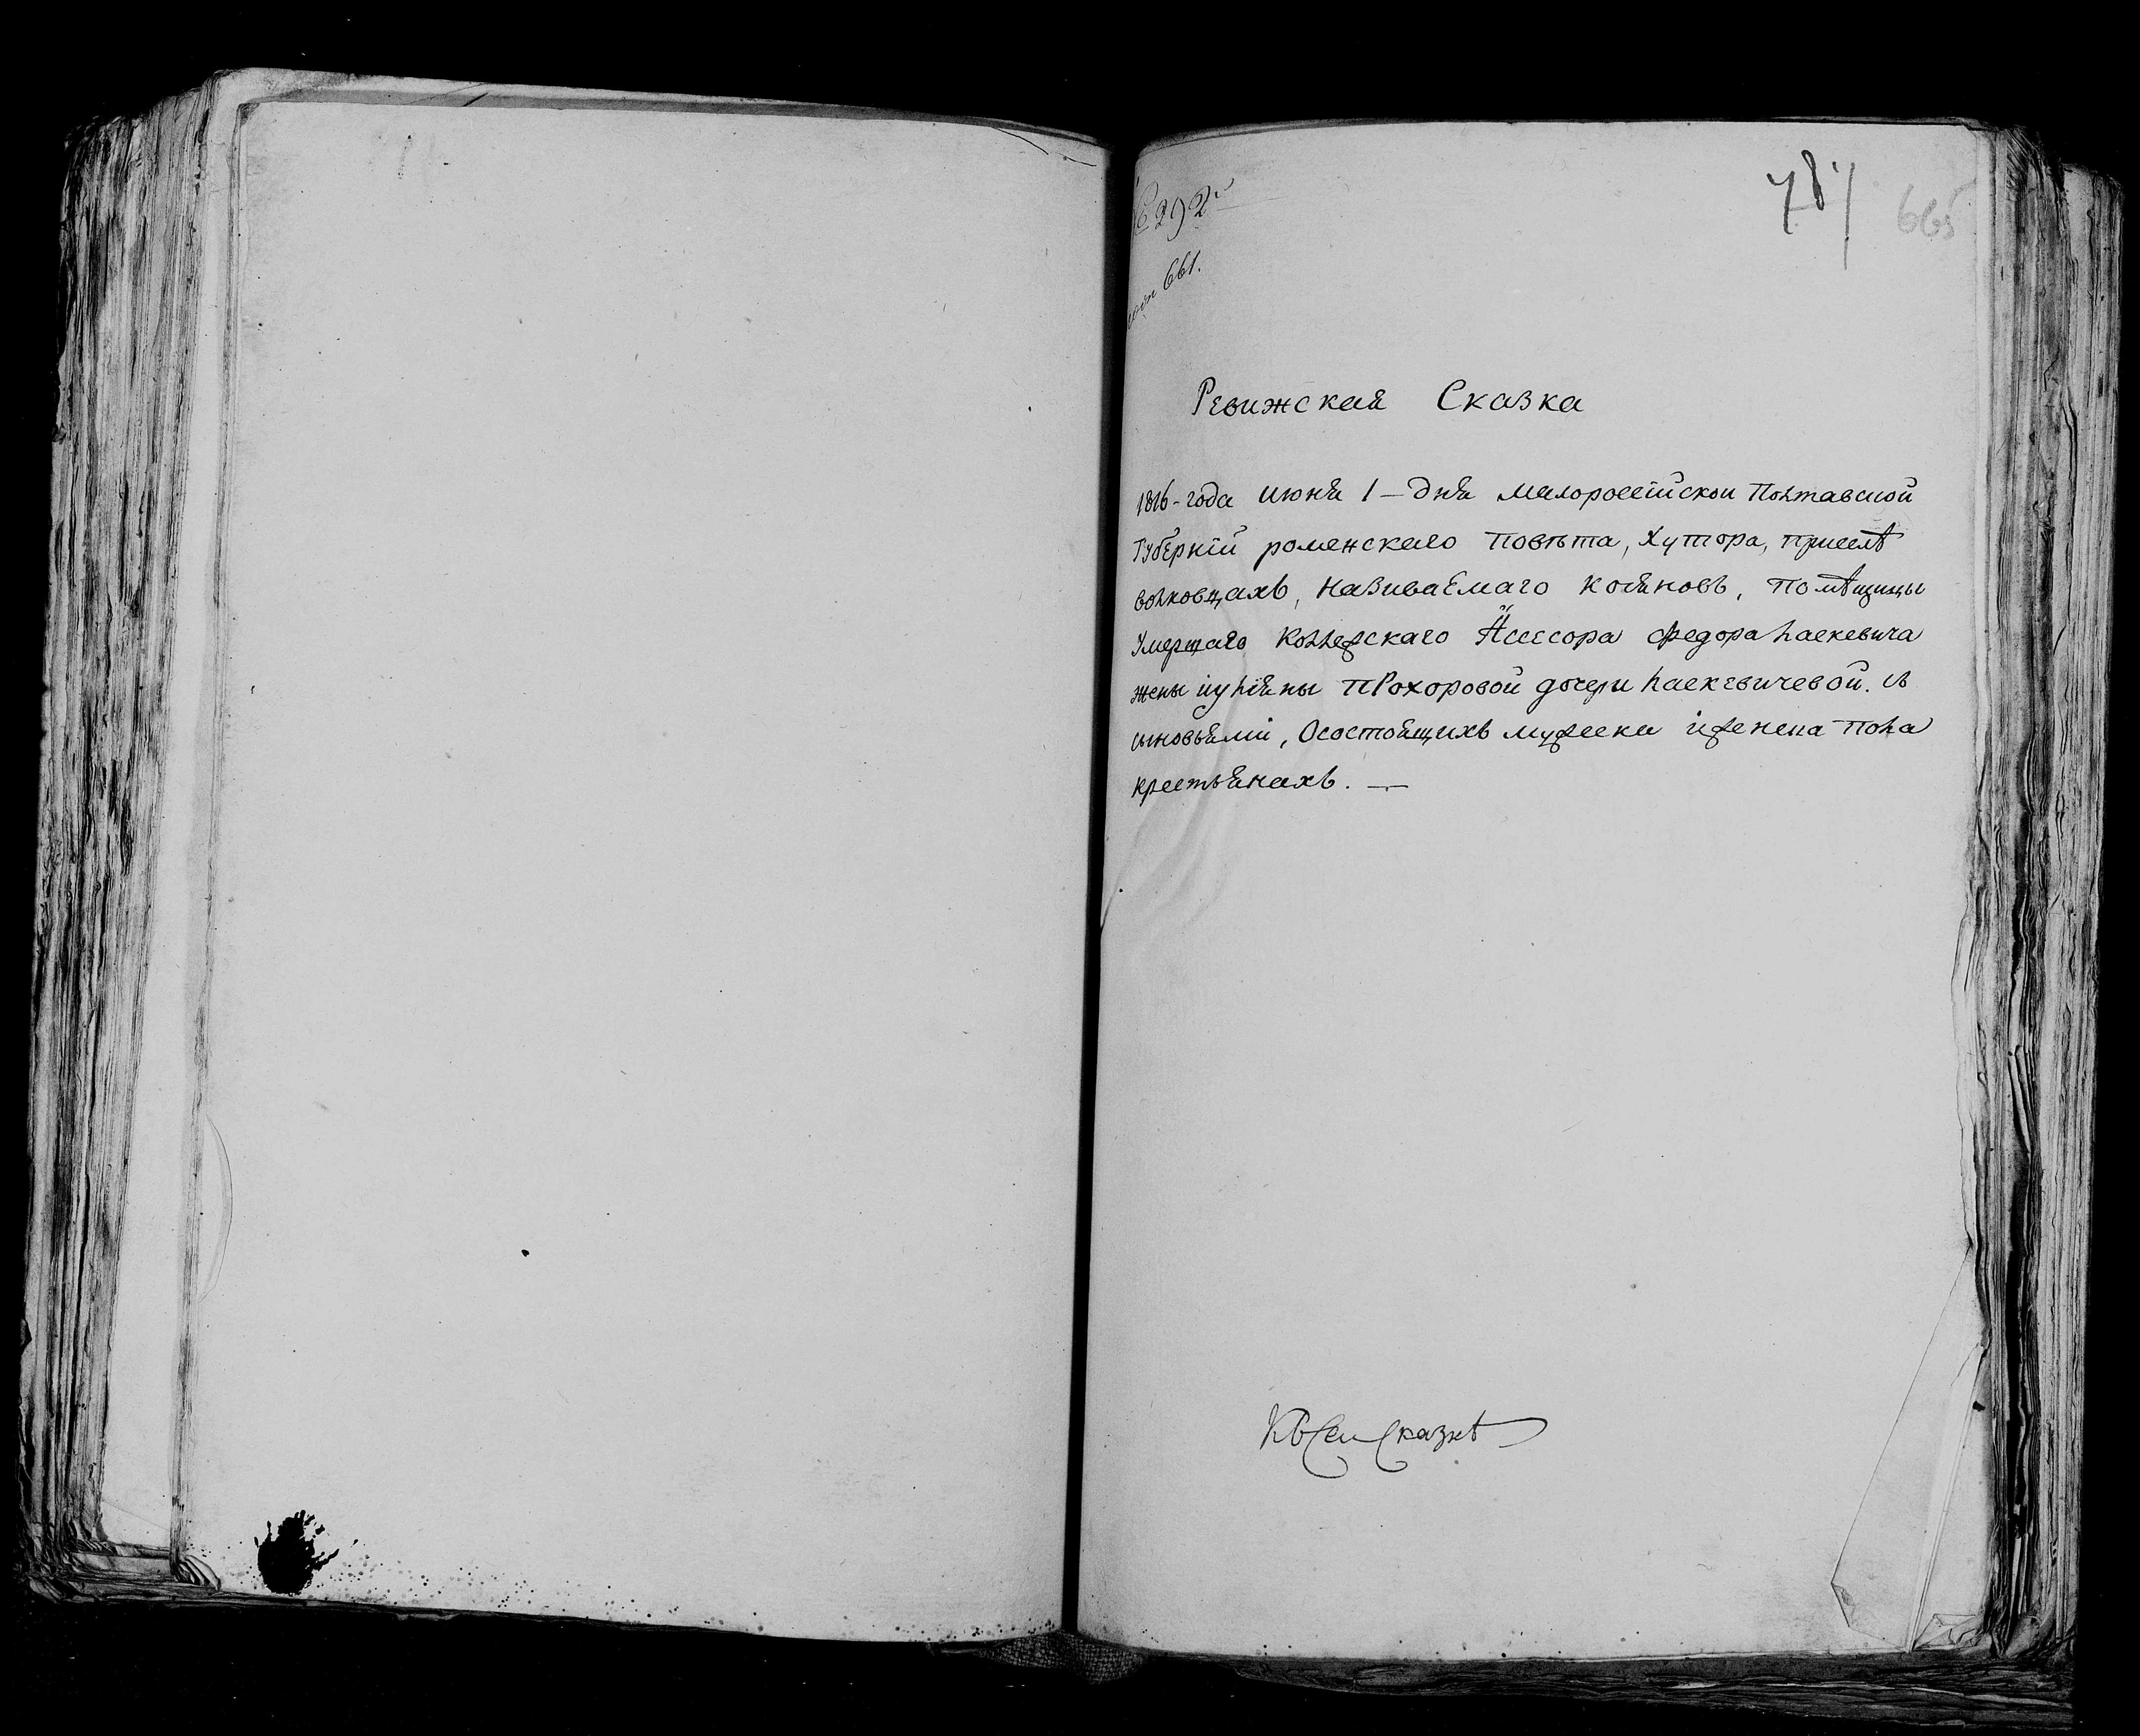 292
661.
787 665
Ревижская Сказка
1816-года июня 1-дня малоросеїйскои Полтавской
Губернїй роменскаго повѣта, хутора, приселѣ
волковцахъ, називаемаго кояновъ, помѣщицы
умершаго коллежскаго Асесора федора лаекевича
жены иулїяны прохоровой дочери лаекевичевой. съ
сыновьямї, осостоящихъ мужеска їженска пола
крестьянахъ. —
Къ Сей Сказкѣ